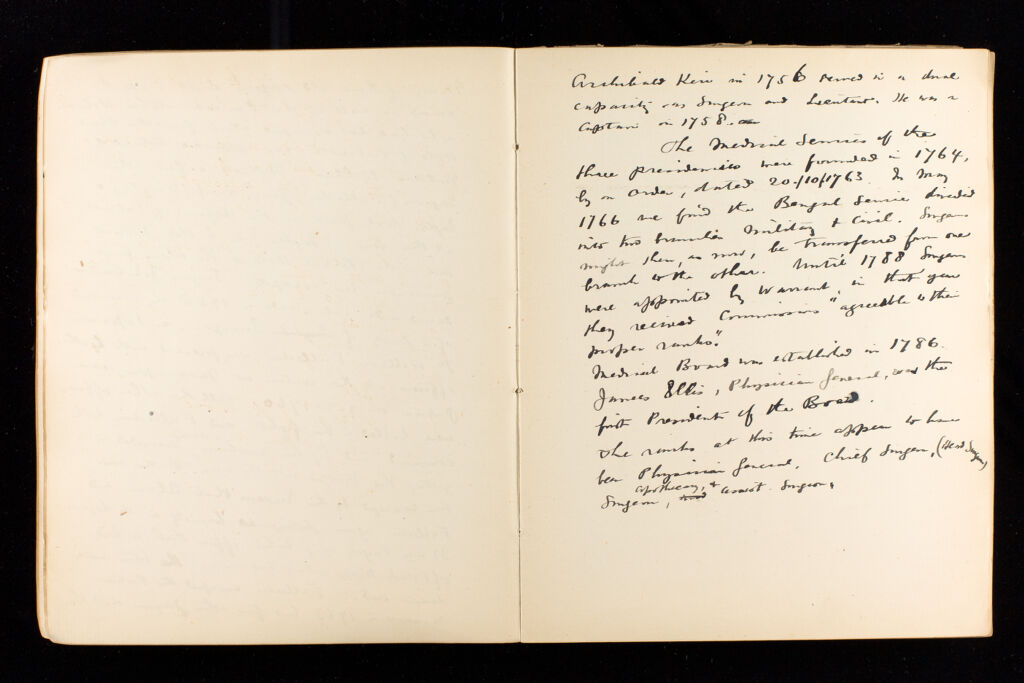 Archibald Keir in 1756 served in a dual
capacity as Surgeon and Lieutent. He was a
Captain in 1758.
The Medical Services of the
three presidencies were founded in 1764,
by an order, dated 20/10/1763. In May
1766 we find the Bengal Service divided
into two branches Military & Civil. Surgeons
might then, as now, be transferred from one
branch to the other. Until 1788 Surgeons
were appointed by Warrant, in that year
they received Commissions "agreeable to their
proper ranks".
Medical Board was established in 1786.
James Ellis, Physician General, was the
first President of the Board.
The ranks at this time appear to have
been Physician General, Chief Surgeon, (Head Surgeon)
apothecary, &
Surgeon, and assist. Surgeon.